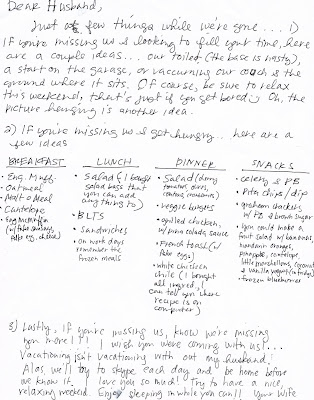 Dear Husband,
Just a few things while we're gone... 1)
If you're missing us & looking to fill your time, here
are a couple ideas... our toilet (the base is nasty),
a start on the garage, or vaccuming our couch & the
ground where it sits. Of coarse, be sure to relax
this weekend, that's just if you get bored :) Oh, the
picture hanging is another idea.
2) If you're missing us & got hungry... here are a
few ideas
BREAKFAST LUNCH DINNER SNACKS
• Eng. Muff.
• Oatmeal
• Malt o Meal
• Cantelope
• Egg muffin
(w/ fake sausage,
fake egg, cheese)
• Salad (I bought
salad bags that
you can add
anything to)
• BLTS
• Sandwiches
• on work days
remember the
frozen meals
• Salad (
tomatoes, olives,
)
• veggie burgers
• grilled chicken,
w/ pina colada sauce
• French toast (w/
fake egg)
• white chicken
chile (I bought
all ingred, I
can tell you where
recipe is on
computer)
• celery & PB
• Pita chips/dip
• graham crackers
w/ PB & brown sugar
• you could make a
fruit salad w/ bananas,
mandarin oranges,
pineapple, cantelope
little marshmallows, coconut
& vanilla yogurt (in fridge)
• frozen blueberries
3) Lastly, if you're missing us, know we're missing
you more!!! I wish you were coming with us!...
Vacationing isn't vacationing with out my husband!
Alas, we'll try to skype each day and be home before
we know it. I love you so much! Try to have a nice
relaxing weekend. Enjoy sleeping in while you can!! Your Wife